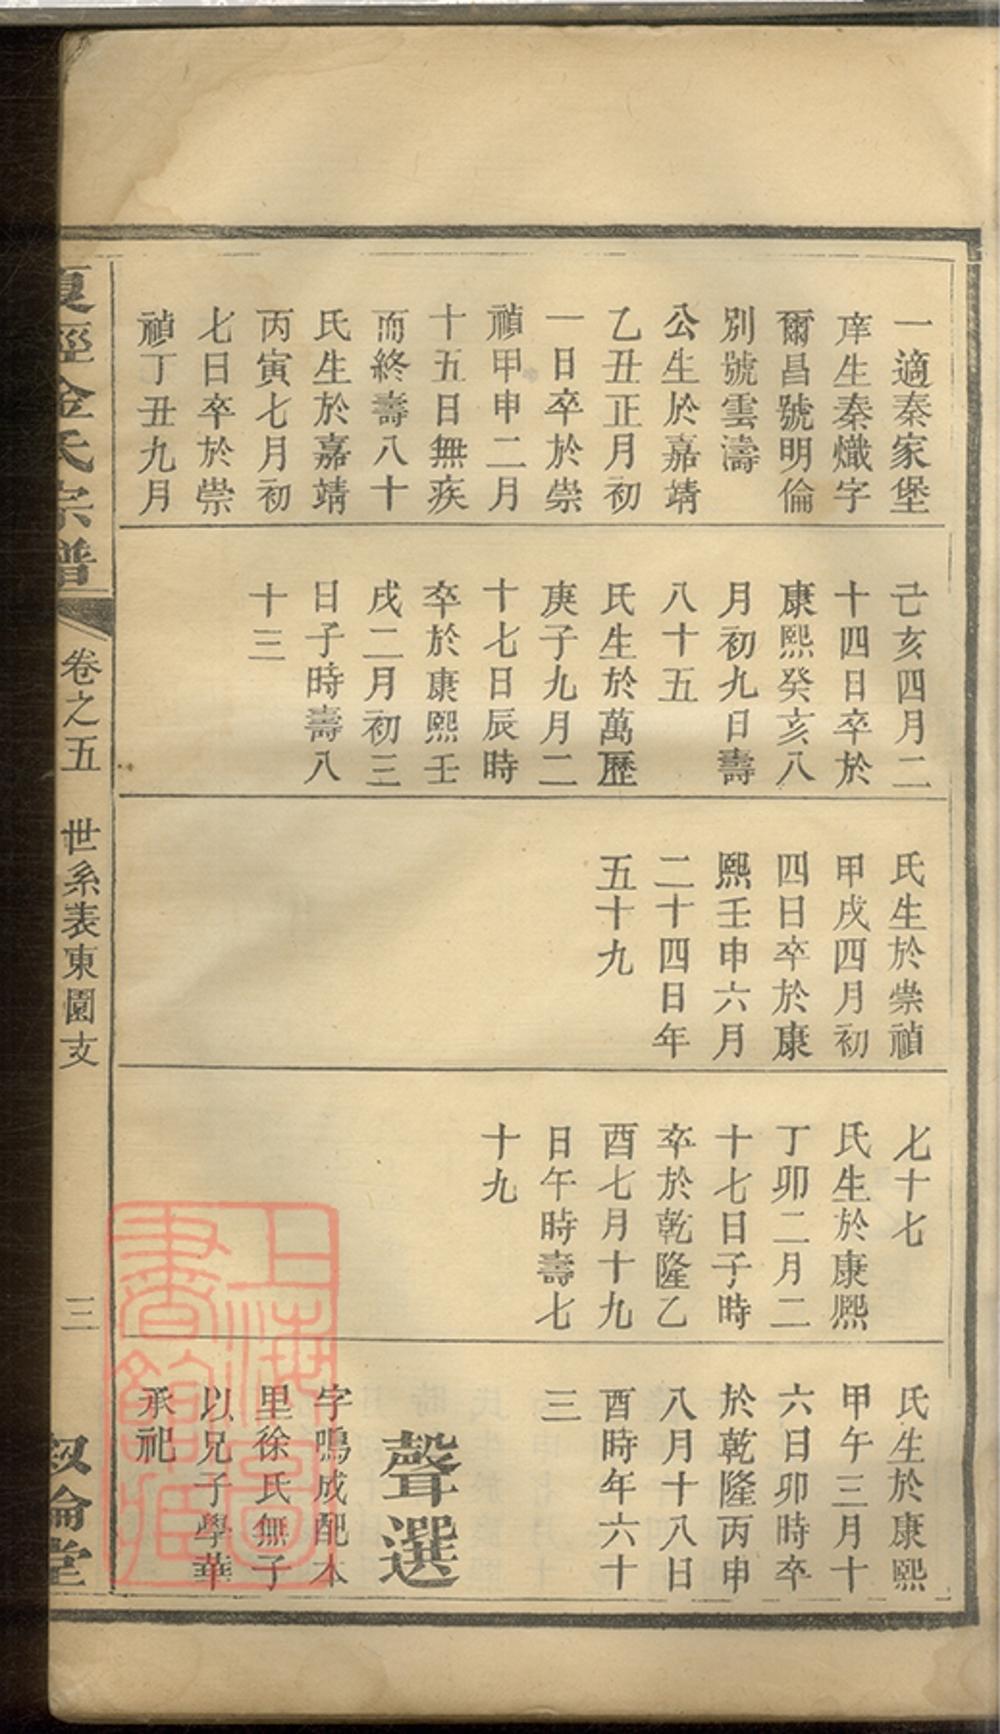 一適秦家堡
庠生秦熾字
爾昌號明倫
別號雲濤
公生於嘉靖
乙丑正月初
一日卒於崇
禎甲申二月
十五日無疾
而終壽八十
氏生於嘉靖
丙寅七月初
七日卒於崇
禎丁丑九月
己亥四月二
十四日卒於
康熙癸亥八
月初九日壽
八十五
氏生於萬歷
庚子九月二
十七日辰時
卒於康熙壬
戌二月初三
日子時壽八
十三
氏生於崇禎
甲戌四月初
四日卒於康
熙壬申六月
二十四日年
五十九
七十七
氏生於康熙
丁卯二月二
十七日子時
卒於乾隆乙
酉七月十九
日午時壽七
十九
氏生於康熙
甲午三月十
六日卯時卒
於乾隆丙申
八月十八日
酉時年六十
三
聲選
字鳴成配本
里徐氏無子
以兄子學華
承祀
金氏宗譜
卷之五 世系表東園支
三
敘倫堂
上海圖
書館藏